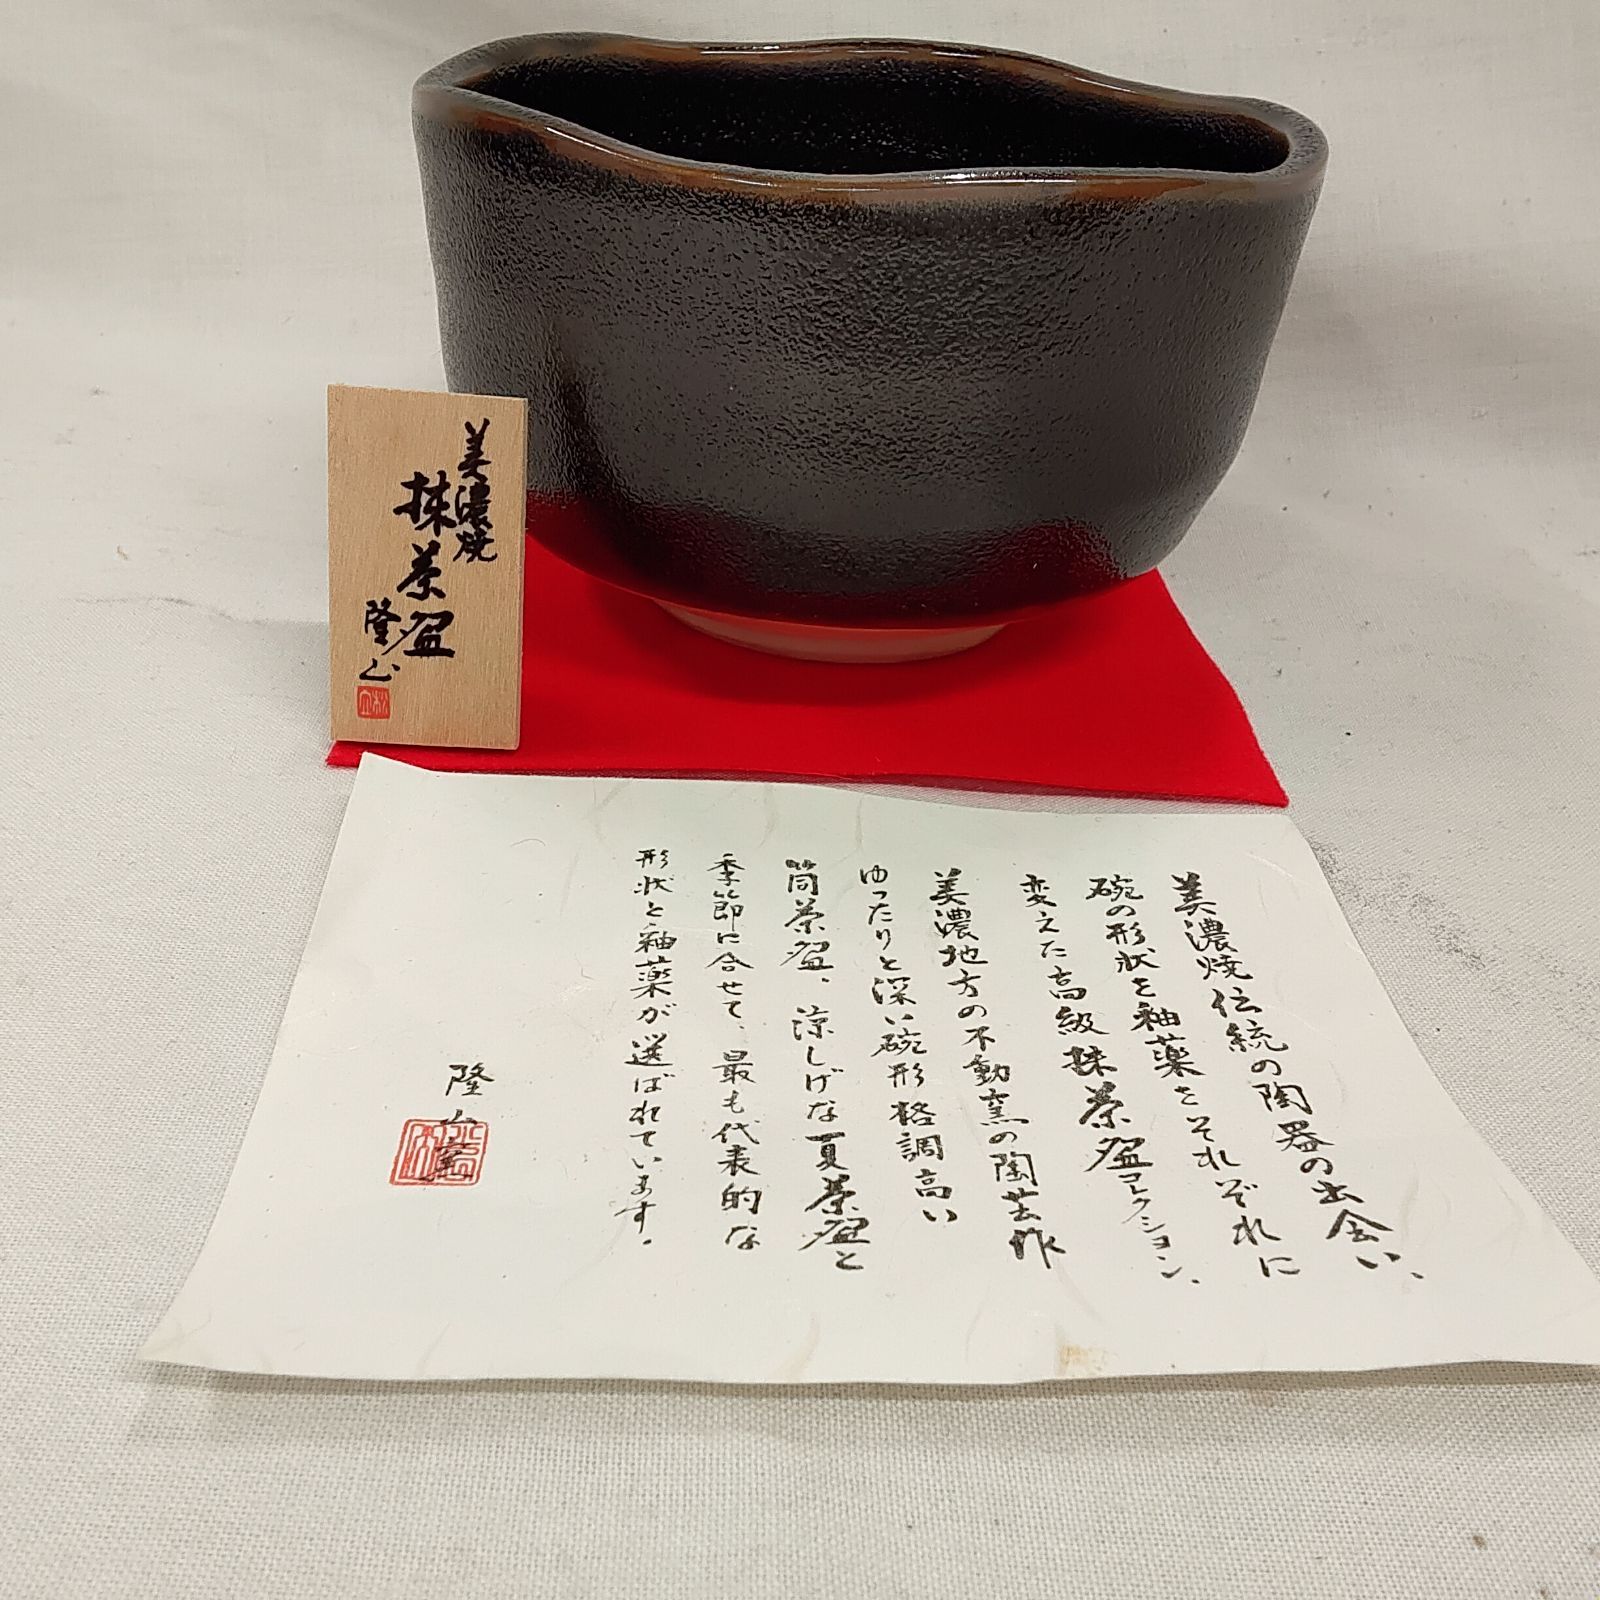 美濃焼
抹茶盌
隆山
美濃焼伝統の陶器の出会い、
碗の形状を釉薬をそれぞれに
変えた高級抹茶盌コレクション、
美濃地方の不動窯の陶芸作
ゆったりと深い碗形格調高い
筒茶盌、涼しげな夏茶盌と
季節に合せて、最も代表的な
形状と釉薬が選ばれています。
隆山窯